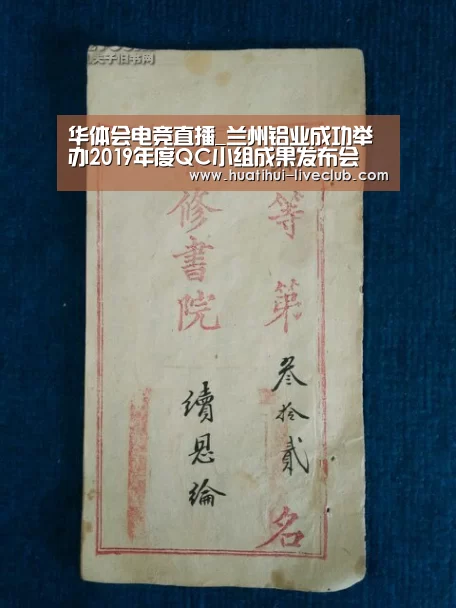 夫子旧书网
华体会电竞直播_兰州铝业成功举
办2019年度QC小组成果发布会
www.huatihui-liveclub.com
等第叁拾贰名
修書院
續恩綸